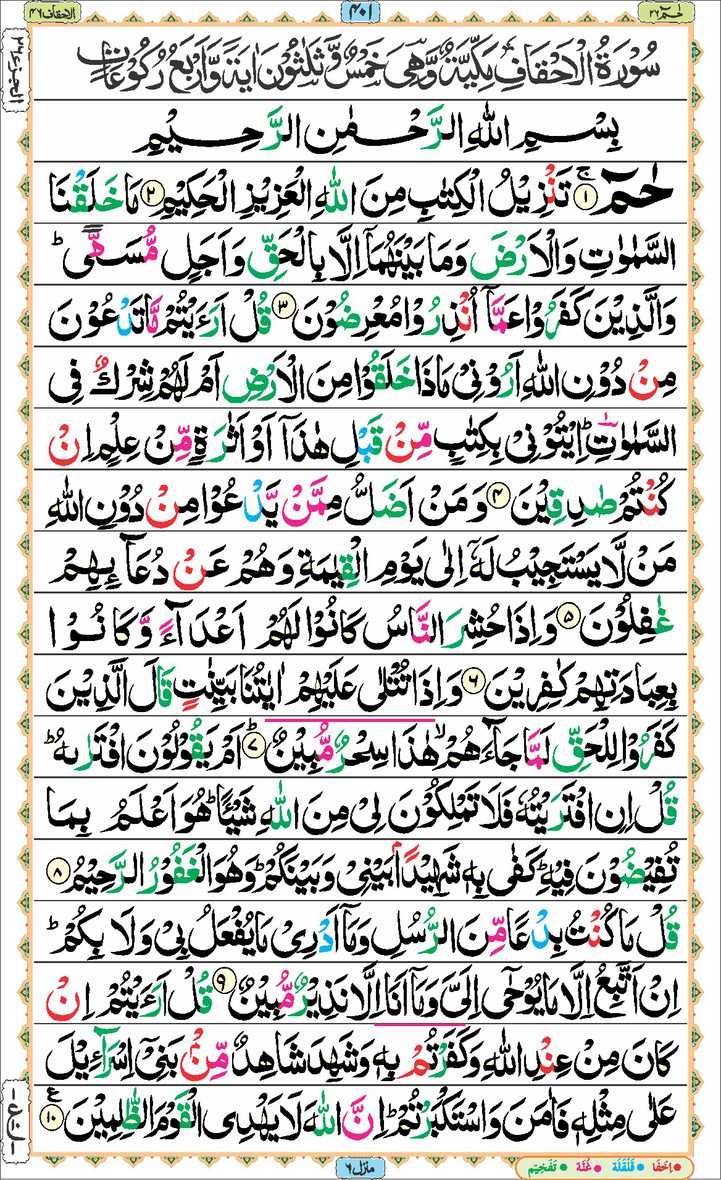 حٰمٓ ٢٦
٤٠١
الاحقاف ٤٦
الجزء ٢٦
سُوْرَةُ الْاَحْقَافِ مَكِّيَّةٌ وَّهِيَ خَمْسٌ وَّثَلٰثُوْنَ اٰيَةً وَّاَرْبَعُ رُكُوْعَاتٍ
بِسْمِ اللّٰهِ الرَّحْمٰنِ الرَّحِيْمِ
حٰمٓ ۚ ١ تَنْزِيْلُ الْكِتٰبِ مِنَ اللّٰهِ الْعَزِيْزِ الْحَكِيْمِ ٢ مَا خَلَقْنَا
السَّمٰوٰتِ وَالْاَرْضَ وَمَا بَيْنَهُمَاۤ اِلَّا بِالْحَقِّ وَاَجَلٍ مُّسَمًّى ؕ
وَالَّذِيْنَ كَفَرُوْا عَمَّاۤ اُنْذِرُوْا مُعْرِضُوْنَ ٣ قُلْ اَرَءَيْتُمْ مَّا تَدْعُوْنَ
مِنْ دُوْنِ اللّٰهِ اَرُوْنِيْ مَاذَا خَلَقُوْا مِنَ الْاَرْضِ اَمْ لَهُمْ شِرْكٌ فِي
السَّمٰوٰتِ ؕ اِيْتُوْنِيْ بِكِتٰبٍ مِّنْ قَبْلِ هٰذَاۤ اَوْ اَثٰرَةٍ مِّنْ عِلْمٍ اِنْ
كُنْتُمْ صٰدِقِيْنَ ٤ وَمَنْ اَضَلُّ مِمَّنْ يَّدْعُوْا مِنْ دُوْنِ اللّٰهِ
مَنْ لَّا يَسْتَجِيْبُ لَهٗۤ اِلٰى يَوْمِ الْقِيٰمَةِ وَهُمْ عَنْ دُعَآئِهِمْ
غٰفِلُوْنَ ٥ وَاِذَا حُشِرَ النَّاسُ كَانُوْا لَهُمْ اَعْدَآءً وَّكَانُوْا
بِعِبَادَتِهِمْ كٰفِرِيْنَ ٦ وَاِذَا تُتْلٰى عَلَيْهِمْ اٰيٰتُنَا بَيِّنٰتٍ قَالَ الَّذِيْنَ
كَفَرُوْا لِلْحَقِّ لَمَّا جَآءَهُمْ ۙ هٰذَا سِحْرٌ مُّبِيْنٌ ؕ ٧ اَمْ يَقُوْلُوْنَ افْتَرٰىهُ ؕ
قُلْ اِنِ افْتَرَيْتُهٗ فَلَا تَمْلِكُوْنَ لِيْ مِنَ اللّٰهِ شَيْـًٔا ؕ هُوَ اَعْلَمُ بِمَا
تُفِيْضُوْنَ فِيْهِ ؕ كَفٰى بِهٖ شَهِيْدًۢا بَيْنِيْ وَبَيْنَكُمْ ؕ وَهُوَ الْغَفُوْرُ الرَّحِيْمُ ٨
قُلْ مَا كُنْتُ بِدْعًا مِّنَ الرُّسُلِ وَمَاۤ اَدْرِيْ مَا يُفْعَلُ بِيْ وَلَا بِكُمْ ؕ
اِنْ اَتَّبِعُ اِلَّا مَا يُوْحٰۤى اِلَيَّ وَمَاۤ اَنَا اِلَّا نَذِيْرٌ مُّبِيْنٌ ٩ قُلْ اَرَءَيْتُمْ اِنْ
كَانَ مِنْ عِنْدِ اللّٰهِ وَكَفَرْتُمْ بِهٖ وَشَهِدَ شَاهِدٌ مِّنْۢ بَنِيْۤ اِسْرَآءِيْلَ
عَلٰى مِثْلِهٖ فَاٰمَنَ وَاسْتَكْبَرْتُمْ ؕ اِنَّ اللّٰهَ لَا يَهْدِي الْقَوْمَ الظّٰلِمِيْنَ ١٠ ع
منزل ٦
اِخفَا
قَلْقَلَة
غُنَّة
تَفْخِيْم